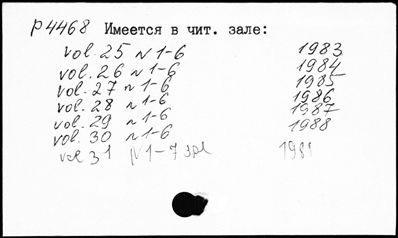 р4468 Имеется в чит. зале:
vol. 25 N 1-6 1983
vol. 26 N 1-6 1984
vol. 27 N 1-6 1985
vol. 28 N 1-6 1986
vol. 29 N 1-6 1987
vol. 30 N 1-6 1988
vol 31 N 1-7